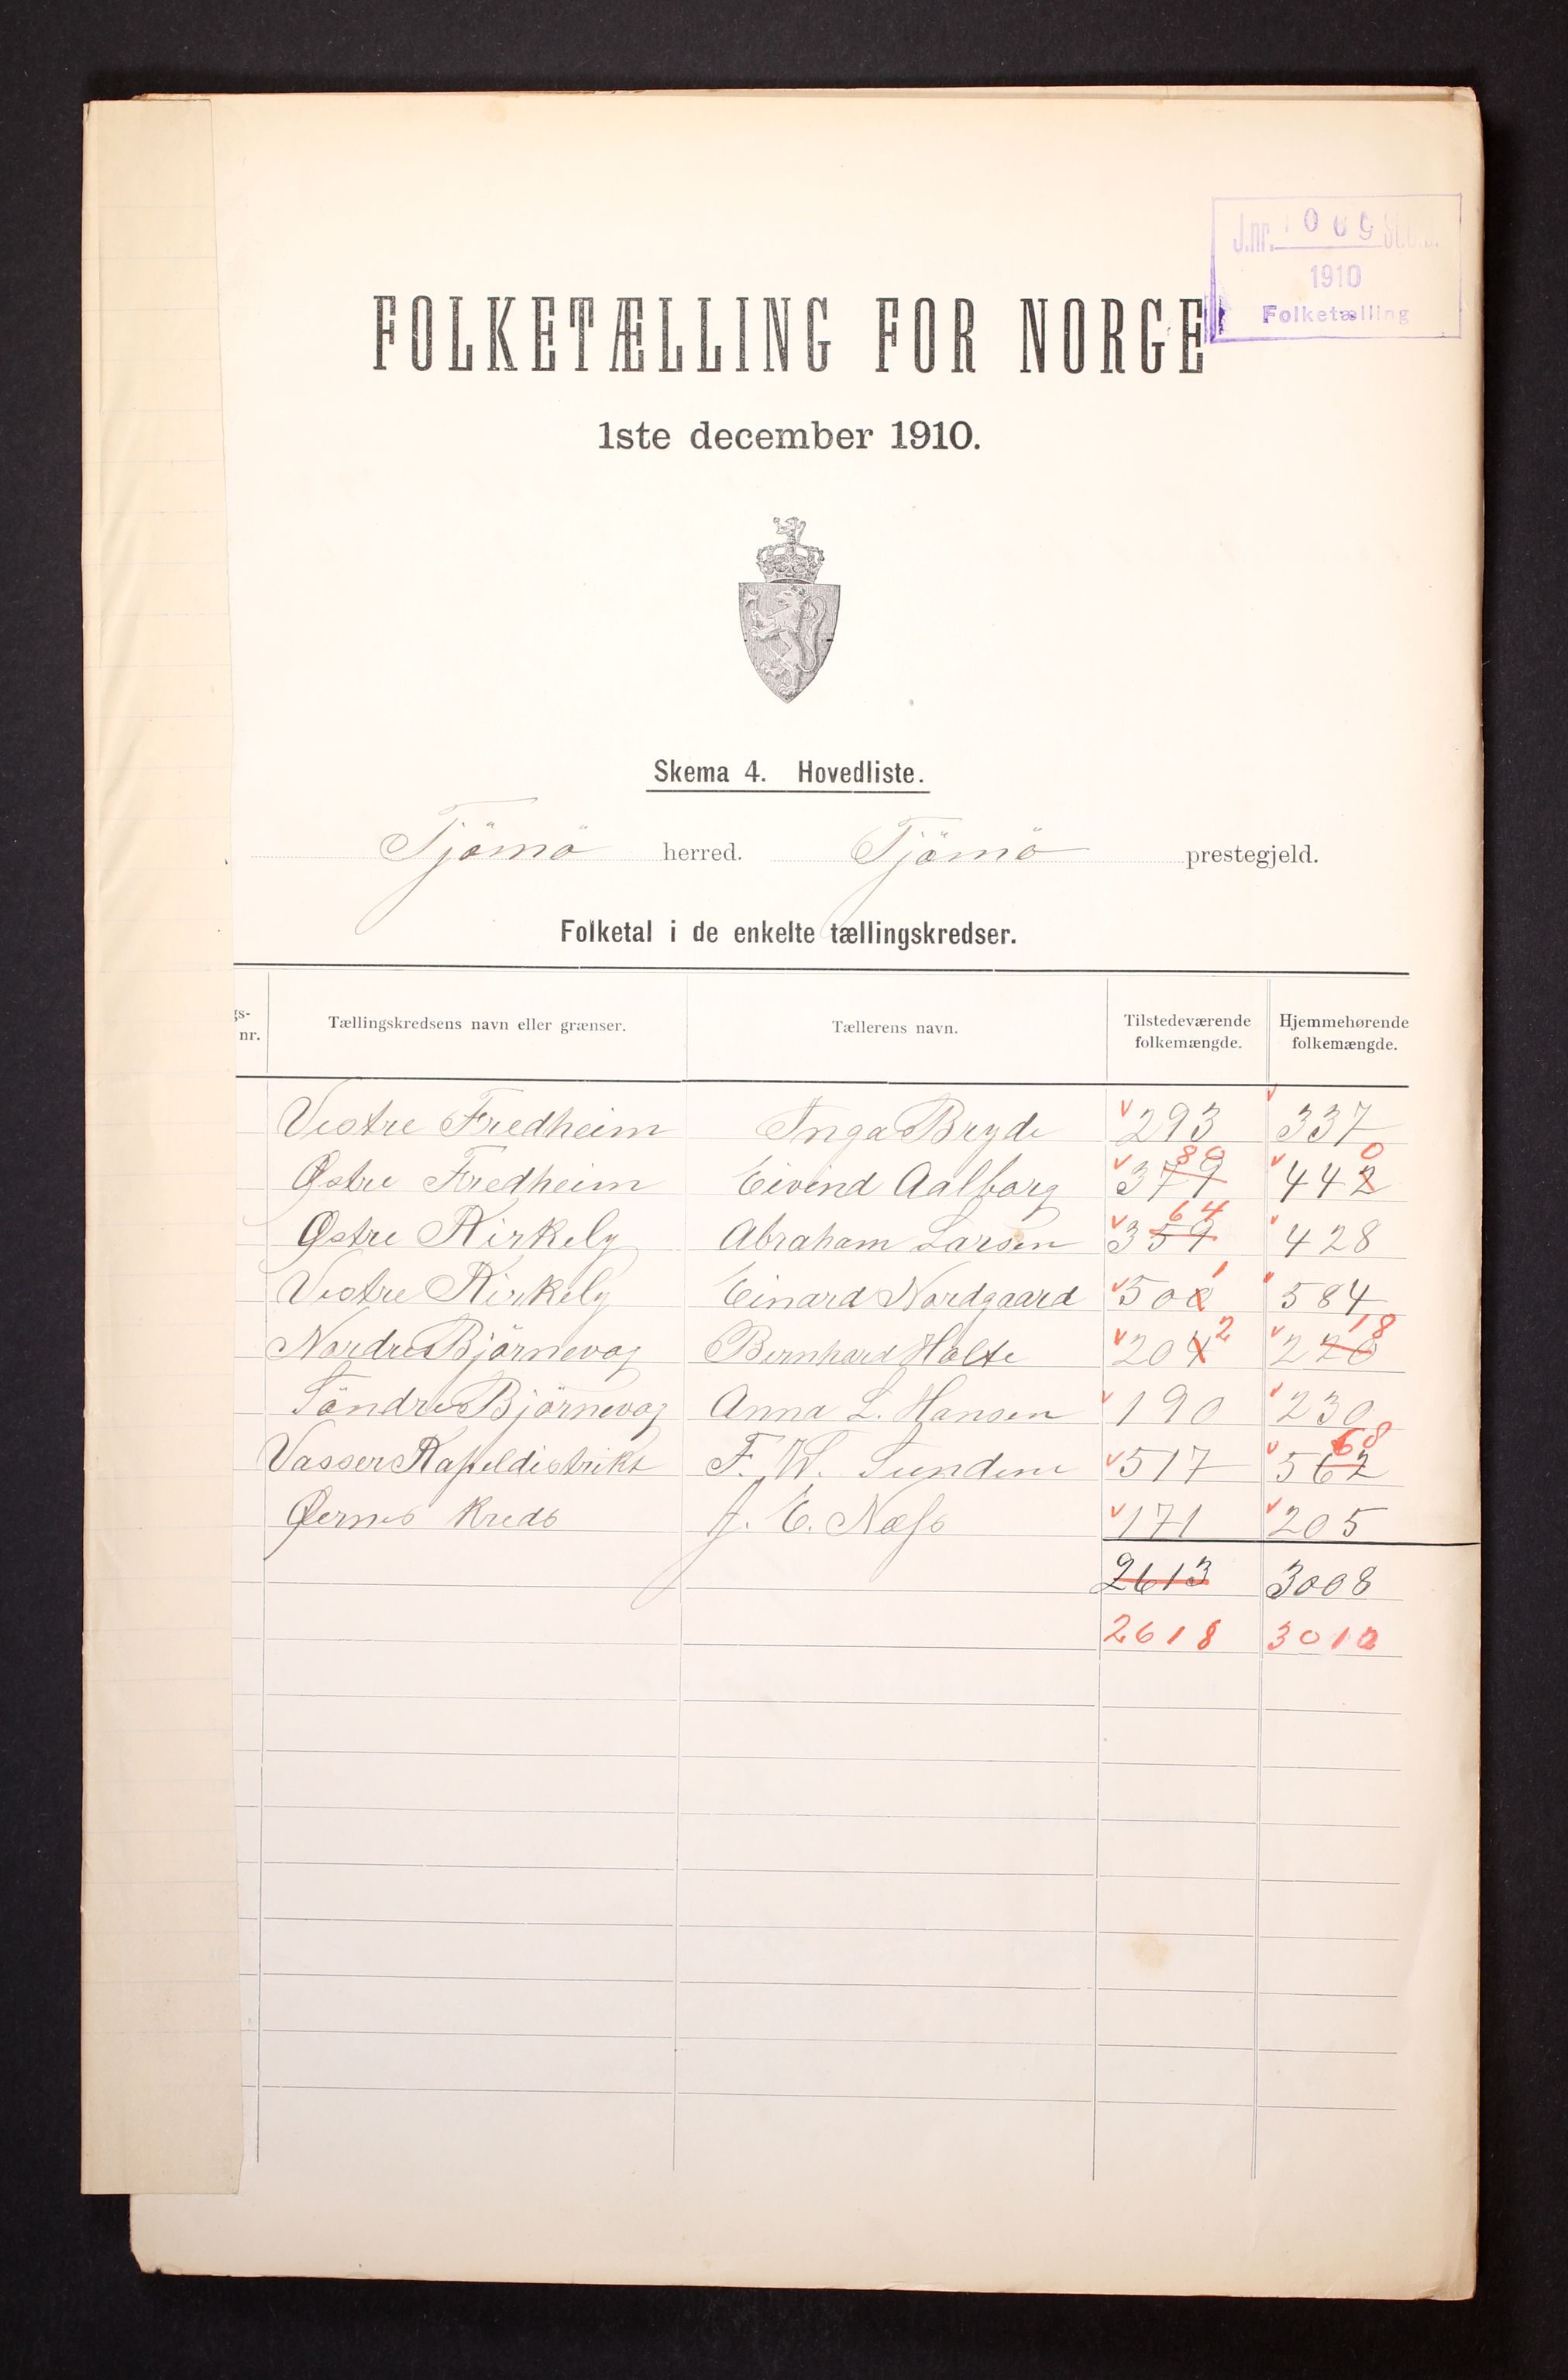 J.nr.
1910
Folketælling
FOLKETÆLLING FOR NORGE
1ste december 1910.
Skema 4. Hovedliste.
Tjömö herred. Tjömö prestegjeld.
Folketal i de enkelte tællingskredser.
gs-
nr.
Tællingskredsens navn eller grænser.
Tællerens navn.
Tilstedeværende
folkemængde.
Hjemmehørende
folkemængde.
Vestre Fredheim Inga Bryde 293 337
80 0
Østre Fredheim Eivind Aalborg 379 442
64
Østre Kirkely Abraham Larsen 359 428
1
Vestre Kirkely Einard Nordgaard 500 584
2 18
Nordre Björnevog Bernhard Holte 204 220
Söndre Björnevog Anna L. Hansen 190 230
68
Vasser Kapeldistrikt F. W. Sundene 517 562
Øernes Kreds J. E. Næss 171 205
2613 3008
2618 3010